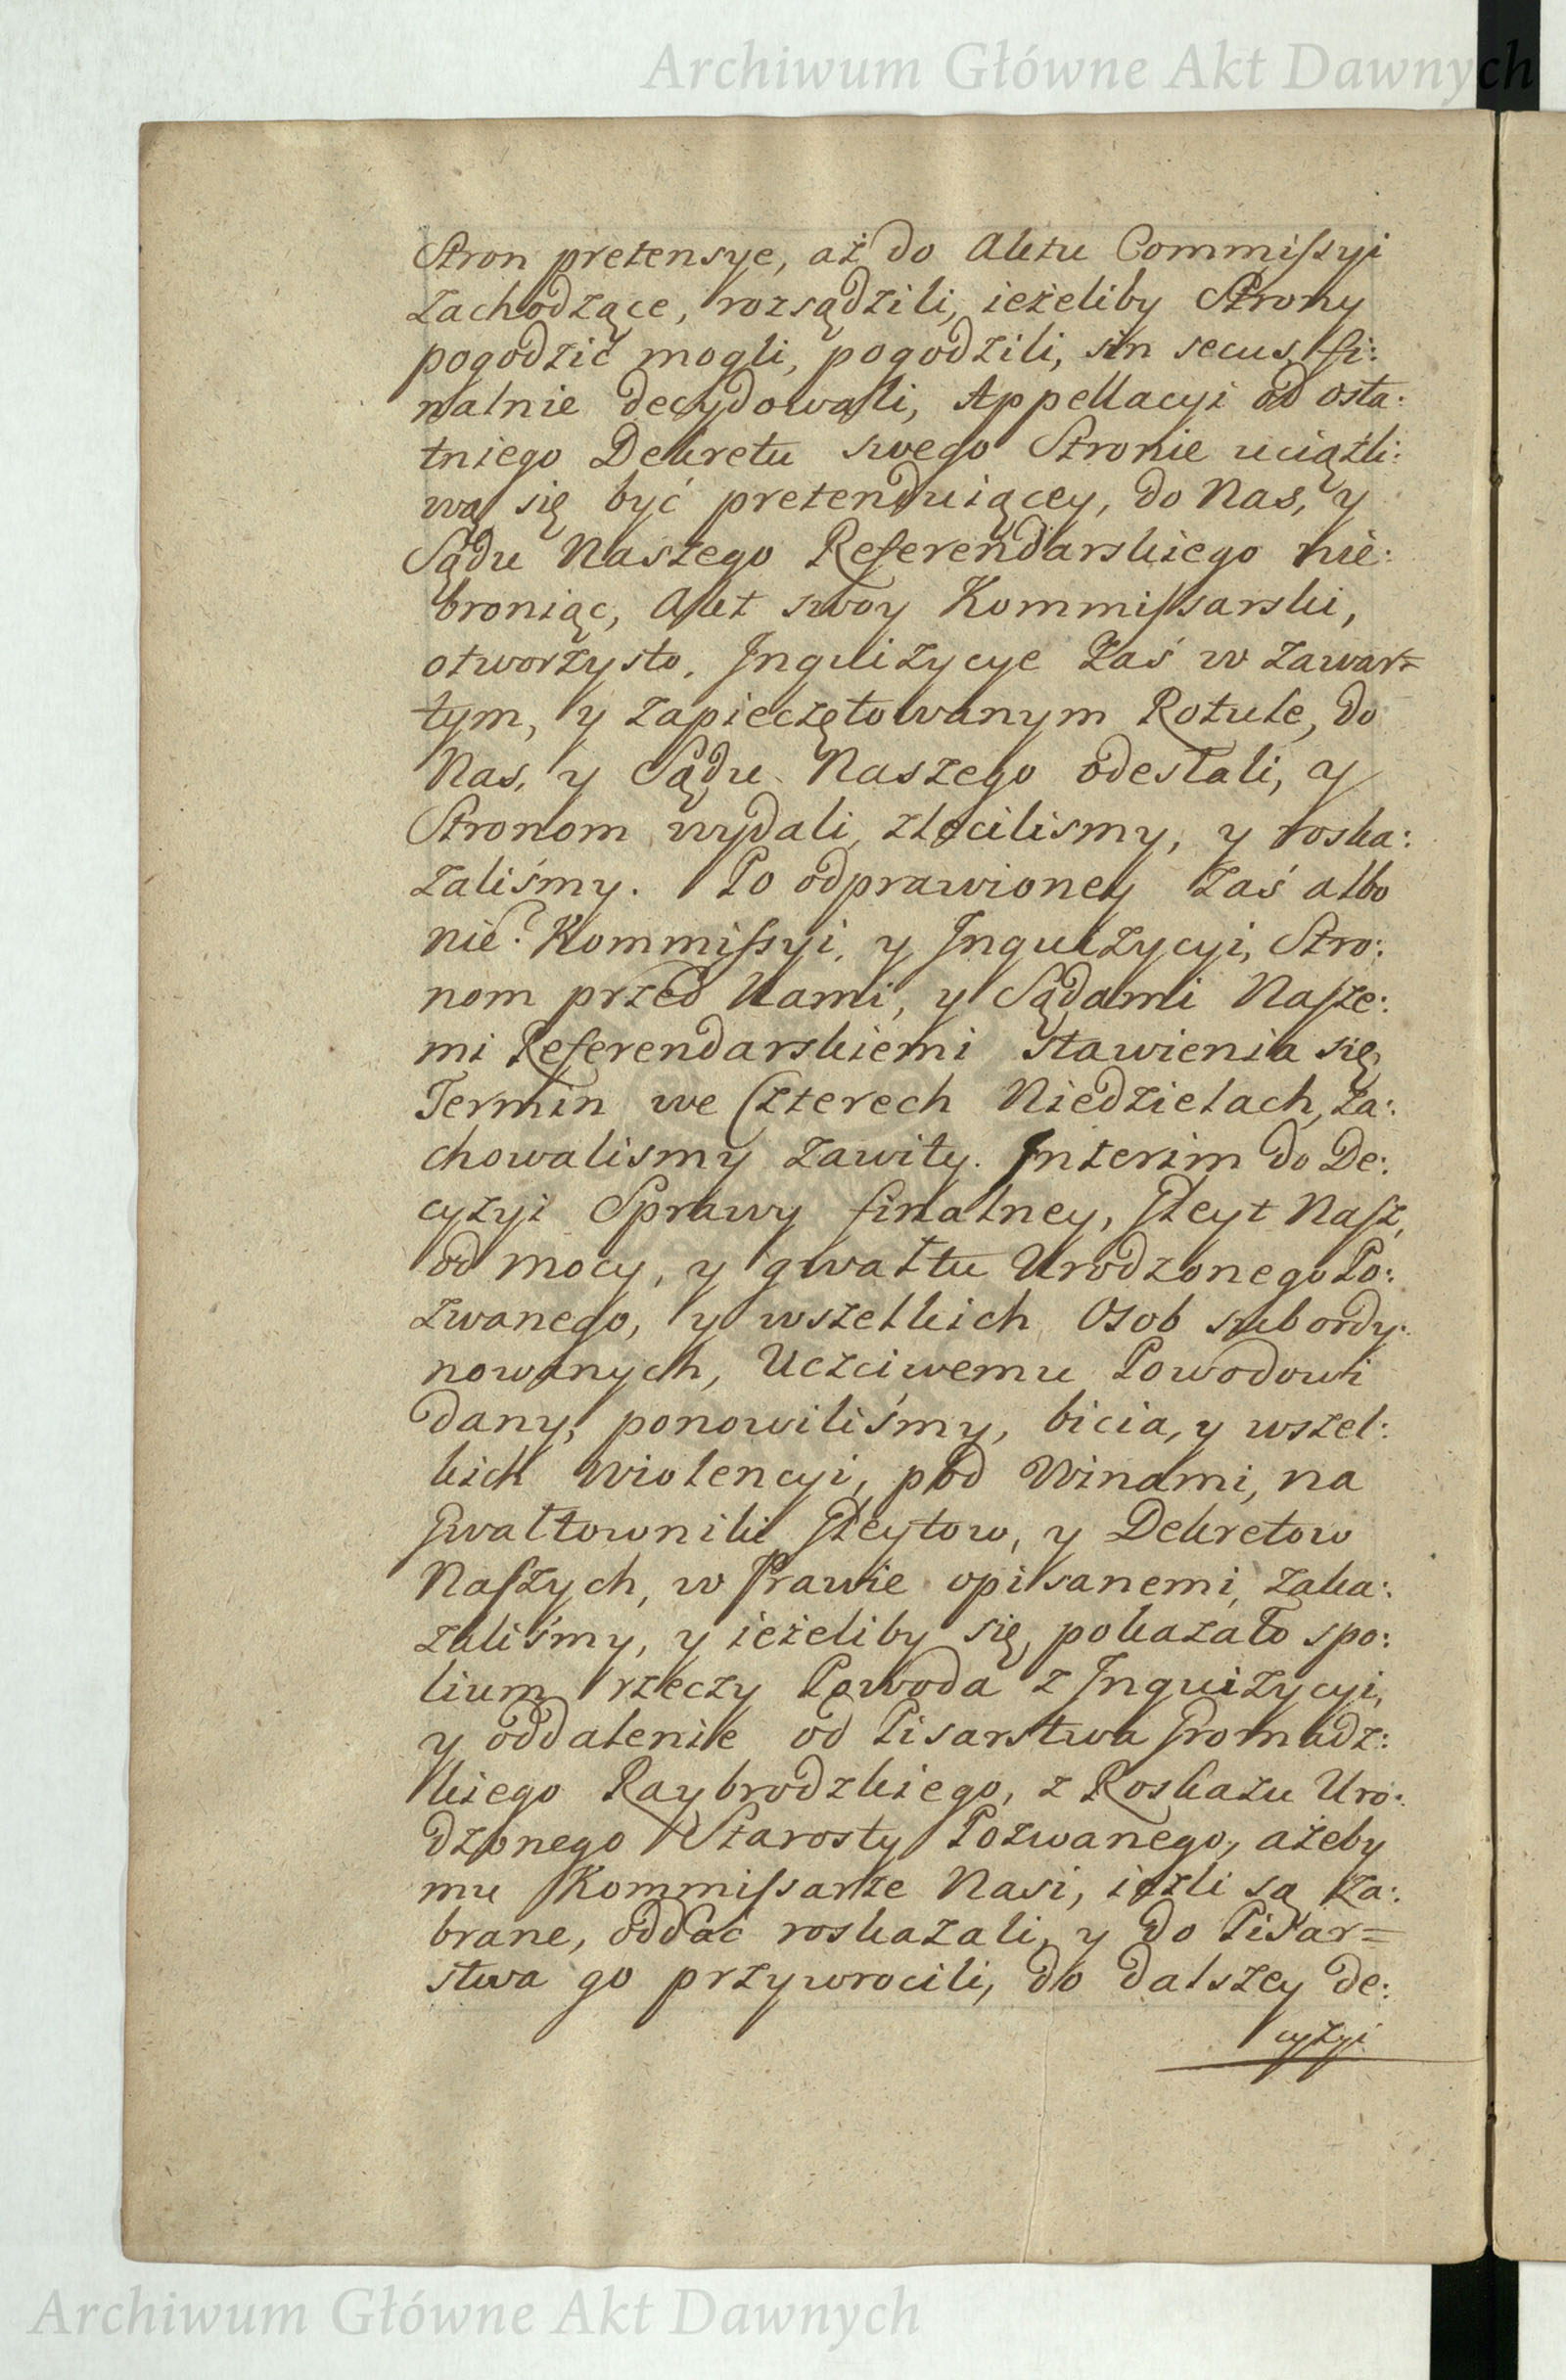 Archiwum Główne Akt Dawnych
Stron pretensye, aż do Aktu Commissyi
zachodzące, rozsądzili, ieżeliby Strony
pogodzić mogli, pogodzili, sin secus fi:
nalnie decydowali, Appellacyi od osta:
tniego Dekretu swego Stronie uciążli:
wą się być pretenduiącey, do Nas, y
Sądu Naszego Referendarskiego nie:
broniąc, Akt swoy Kommissarski,
otworzysto, Inquizycye zaś w zawar=
tym, y zapieczętowanym Rotule, do
Nas, y Sądu Naszego odesłali, y
Stronom wydali, zleciliśmy, y roska:
zaliśmy. Po odprawioney zaś albo
nie? Kommissyi, y Inquizycyi, Stro:
nom przed Nami, y Sądami Nasze:
mi Referendarskiemi stawienia się
Termin we Czterech Niedzielach, za:
chowalismy zawity. Interim do De:
cyzyi Sprawy finalney, Gleyt Nasz,
od mocy, y gwałtu Urodzonego Po:
zwanego, y wszelkich Osob subordy:
nowanych, Uczciwemu Powodowi
dany, ponowiliśmy, bicia, y wszel:
kich wiolencyi, pod Winami, na
Gwałtowniki Gleytow, y Dekretow
Naszych, w Prawie opisanemi, zaka:
zaliśmy, y ieżeliby się pokazało spo:
lium rzeczy Powoda z Inquizycyi,
y oddalenie od Pisarstwa Gromadz:
kiego Raybrodzkiego, z Roskazu Uro:
dzonego Starosty Pozwanego, ażeby
mu Kommissarze Nasi, ieżli są za:
brane, oddać roskazali, y do Pisar=
stwa go przywrocili, do dalszey de:
cyzyi
Archiwum Główne Akt Dawnych